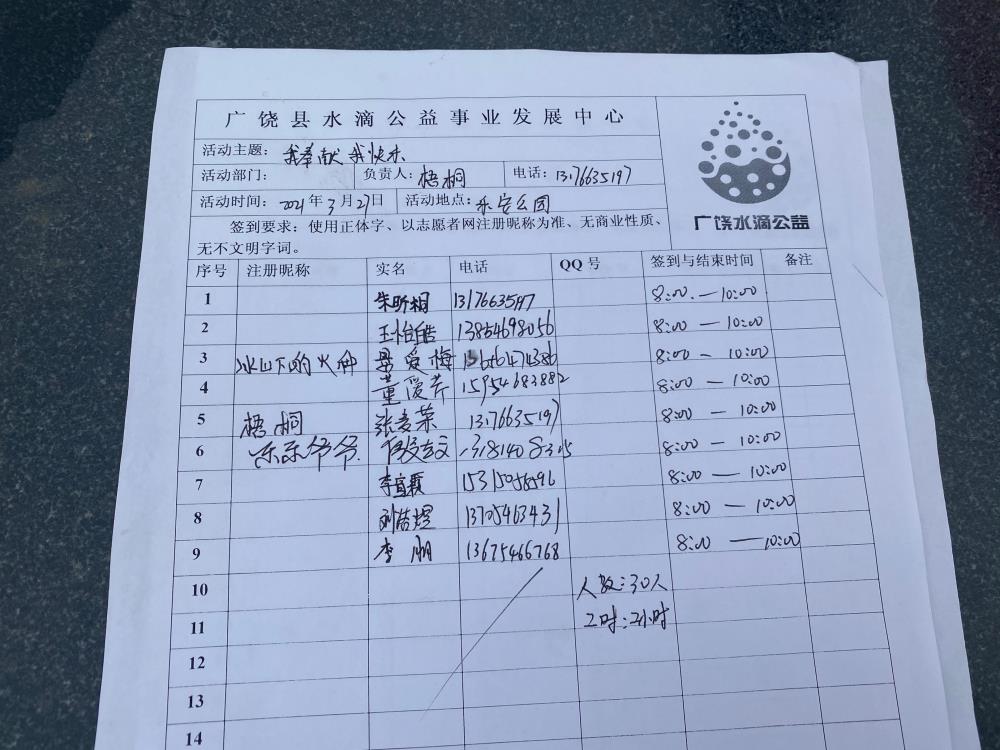 广饶县水滴公益事业发展中心
活动主题：我奉献我快乐
活动部门： 负责人：梧桐 电话：13176635197
活动时间：2021年3月27日 活动地点：乐安公园
签到要求：使用正体字、以志愿者网注册昵称为准、无商业性质、
无不文明字词。
广饶水滴公益
序号 注册昵称 实名 电话 QQ号 签到与结束时间 备注
1 朱昕桐 8:00.—10:00
2 王怡皓 13854698056 8:00 — 10:00
3 冰山下的火种 8:00 — 10:00
4 董爱芹 15954683882 8:00 — 10:00
5 梧桐 张麦荣 13176635197 8:00 — 10:00
6 东东爷爷 8:00 — 10:00
7 李宜颖 15315058596 8:00 — 10:00
8 刘皓煜 13705463431 8:00 — 10:00
9 李朋 13675466768 8:00 — 10:00
10 人数:30人
11 工时:2小时
12
13
14